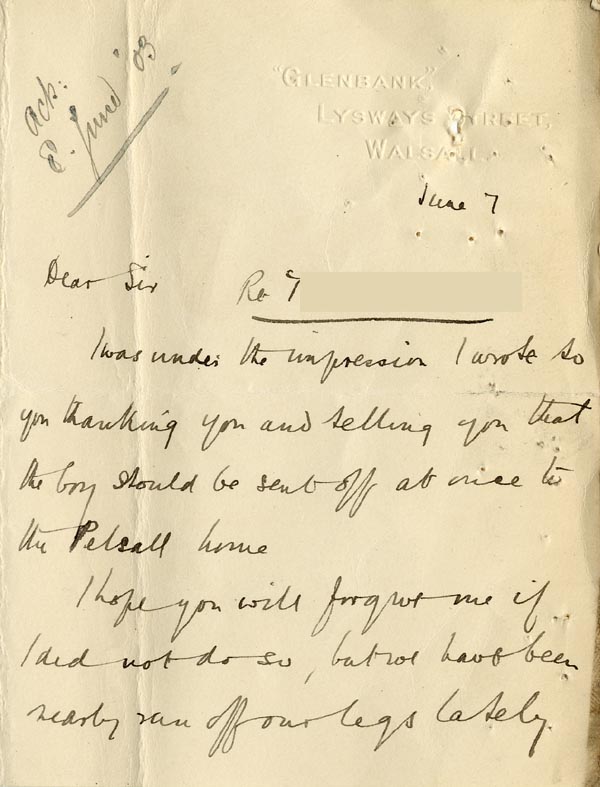 Ack:
8. June '03
"GLENBANK",
LYSWAYS STREET,
WALSALL.
June 7
Dear Sir Re
I was under the impression I wrote to
you thanking you and telling you that
the boy should be sent off at once to
the Pelsall home
I hope you will forgive me if
I did not do so, but we have been
nearly run off our legs lately.